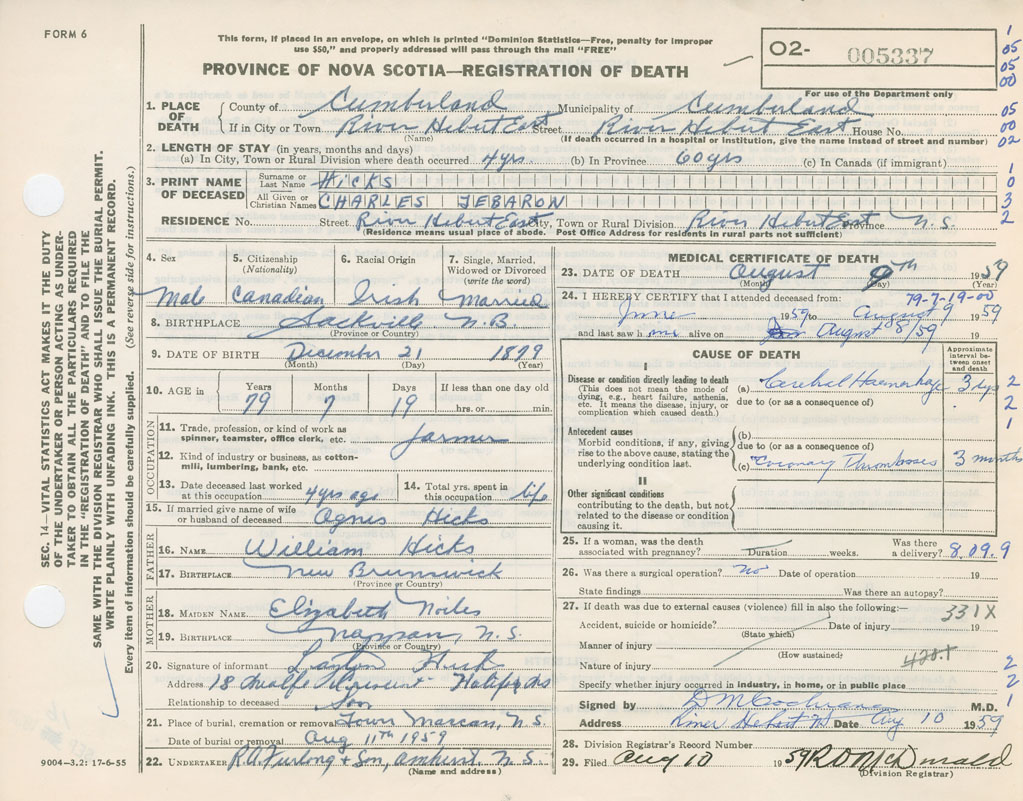 FORM 6
This form, if placed in an envelope, on which is printed "Dominion Statistics—Free, penalty for improper
use $50," and properly addressed will pass through the mail "FREE"
PROVINCE OF NOVA SCOTIA—REGISTRATION OF DEATH
O2- 005337
For use of the Department only
1
05
05
00
05
00
02
1
0
3
2
SEC. 14—VITAL STATISTICS ACT MAKES IT THE DUTY
OF THE UNDERTAKER OR PERSON ACTING AS UNDER-
TAKER TO OBTAIN ALL THE PARTICULARS REQUIRED
IN THE "REGISTRATION OF DEATH" AND TO FILE THE
SAME WITH THE DIVISION REGISTRAR WHO SHALL ISSUE THE BURIAL PERMIT.
WRITE PLAINLY WITH UNFADING INK. THIS IS A PERMANENT RECORD.
Every item of information should be carefully supplied. (See reverse side for instructions.)
1. PLACE OF DEATH County of Cumberland Municipality of Cumberland
If in City or Town River Hebert East Street River Hebert East House No.
(Name) (If death occurred in a hospital or institution, give the name instead of street and number)
2. LENGTH OF STAY (in years, months and days)
(a) In City, Town or Rural Division where death occurred 4 yrs (b) In Province 60 yrs (c) In Canada (if immigrant)
3. PRINT NAME OF DECEASED Surname or Last Name HICKS
All Given or Christian Names CHARLES TEBARON
RESIDENCE No. Street River Hebert East City, Town or Rural Division River Hebert East Province N.S.
(Residence means usual place of abode. Post Office Address for residents in rural parts not sufficient)
4. Sex 5. Citizenship (Nationality) 6. Racial Origin 7. Single, Married, Widowed or Divorced (write the word)
Male Canadian Irish Married
8. BIRTHPLACE Sackville N.B.
(Province or Country)
9. DATE OF BIRTH December 21 1879
(Month) (Day) (Year)
10. AGE in Years Months Days If less than one day old
79 7 19 hrs. or min.
OCCUPATION
11. Trade, profession, or kind of work as spinner, teamster, office clerk, etc. farmer
12. Kind of industry or business, as cotton-mill, lumbering, bank, etc.
13. Date deceased last worked at this occupation 4 yrs ago 14. Total yrs. spent in this occupation life
15. If married give name of wife or husband of deceased Agnes Hicks
FATHER
16. NAME William Hicks
17. BIRTHPLACE New Brunswick
(Province or Country)
MOTHER
18. MAIDEN NAME Elizabeth Noiles
19. BIRTHPLACE Nappan, N.S.
(Province or Country)
20. Signature of informant
Address 18 Crescent Halifax NS
Relationship to deceased Son
21. Place of burial, cremation or removal Maccan, N.S.
Date of burial or removal Aug 11th 1959
22. UNDERTAKER R.A. Furlong & Son, Amherst N.S.
(Name and address)
9004-3.2: 17-6-55
MEDICAL CERTIFICATE OF DEATH
23. DATE OF DEATH August 9th 1959
(Month) (Day) (Year)
24. I HEREBY CERTIFY that I attended deceased from: 79-7-19-00
June 1959 to August 9 1959
and last saw h im alive on August 8/59
CAUSE OF DEATH
Approximate interval between onset and death
I
Disease or condition directly leading to death
(This does not mean the mode of dying, e.g., heart failure, asthenia, etc. It means the disease, injury, or complication which caused death.)
(a) Cerebral Haemorrhage 3 dys
due to (or as a consequence of)
2
2
1
Antecedent causes
Morbid conditions, if any, giving rise to the above cause, stating the underlying condition last.
(b)
due to (or as a consequence of)
(c) Coronary Thrombosis 3 months
II
Other significant conditions
contributing to the death, but not related to the disease or condition causing it.
25. If a woman, was the death associated with pregnancy? Duration weeks. Was there a delivery? 8.09.9
26. Was there a surgical operation? no Date of operation 19
State findings Was there an autopsy?
27. If death was due to external causes (violence) fill in also the following:— 331X
Accident, suicide or homicide? Date of injury 19
(State which)
Manner of injury
(How sustained)
Nature of injury 420.1
2
Specify whether injury occurred in industry, in home, or in public place
2
Signed by D M Cochrane M.D.
1
Address River Hebert N.S. Date Aug 10 1959
28. Division Registrar's Record Number
29. Filed Aug 10 1959 R D McDonald
(Division Registrar)